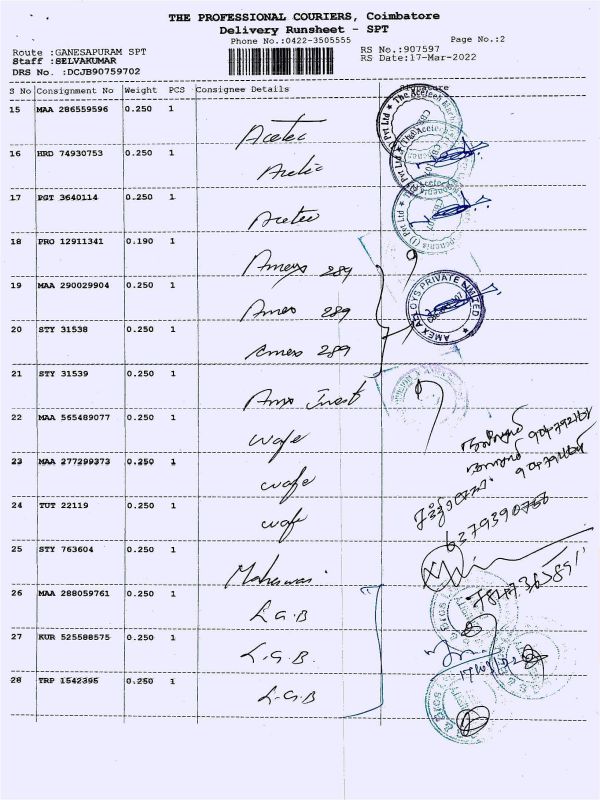 THE PROFESSIONAL COURIERS, Coimbatore
Delivery Runsheet - SPT
Phone No.:0422-3505555
Page No.:2
Route :GANESAPURAM SPT
RS No.:907597
Staff :SELVAKUMAR
RS Date:17-Mar-2022
DRS No. :DCJB90759702
S No Consignment No Weight PCS Consignee Details Signature
15 MAA 286559596 0.250 1 Acetec
16 HRD 74930753 0.250 1 Acetec
17 PGT 3640114 0.250 1 Acetec
18 PRO 12911341 0.190 1 Amexs 289
19 MAA 290029904 0.250 1 Amex 289
20 STY 31538 0.250 1 Amex 289
AMEX ALLOYS PRIVATE LIMITED
21 STY 31539 0.250 1
22 MAA 565489077 0.250 1 wafe
23 MAA 277299373 0.250 1 wafe
24 TUT 22119 0.250 1 wafe
6379390750
25 STY 763604 0.250 1 Maheswari
26 MAA 288059761 0.250 1 L.G.B
27 KUR 525588575 0.250 1 L.G.B.
28 TRP 1542395 0.250 1 L.G.B